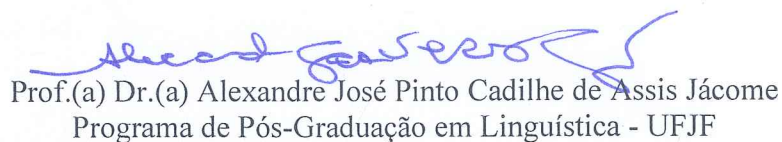 Prof.(a) Dr.(a) Alexandre José Pinto Cadilhe de Assis Jácome
Programa de Pós-Graduação em Linguística - UFJF